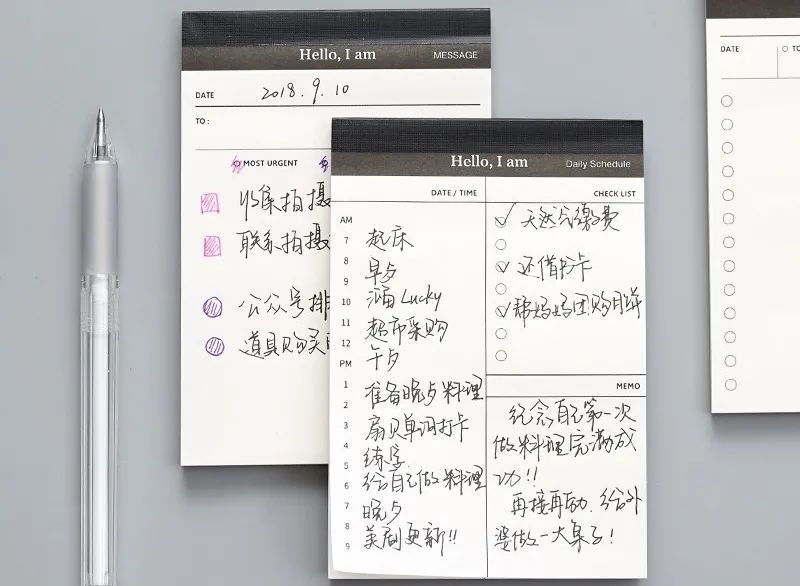 Hello, I am
MESSAGE
DATE 2018.9.10
TO:
MOST URGENT
收集拍摄
联系拍摄
公众号排
道具购买
Hello, I am
Daily Schedule
DATE / TIME
AM
7 起床
8 早夕
9
10 遛 Lucky
11 超市采购
12 午夕
PM
1 准备晚夕料理
2
3 扇贝单词打卡
4 练字
5
6 给自己做料理
7 晚夕
8 美剧更新!!
9
CHECK LIST
天然气缴费
还借书卡
帮妈妈团购月饼
MEMO
纪念自己第一次
做料理完满成
功!!
再接再励,给外
婆做一大桌子!
DATE
TO